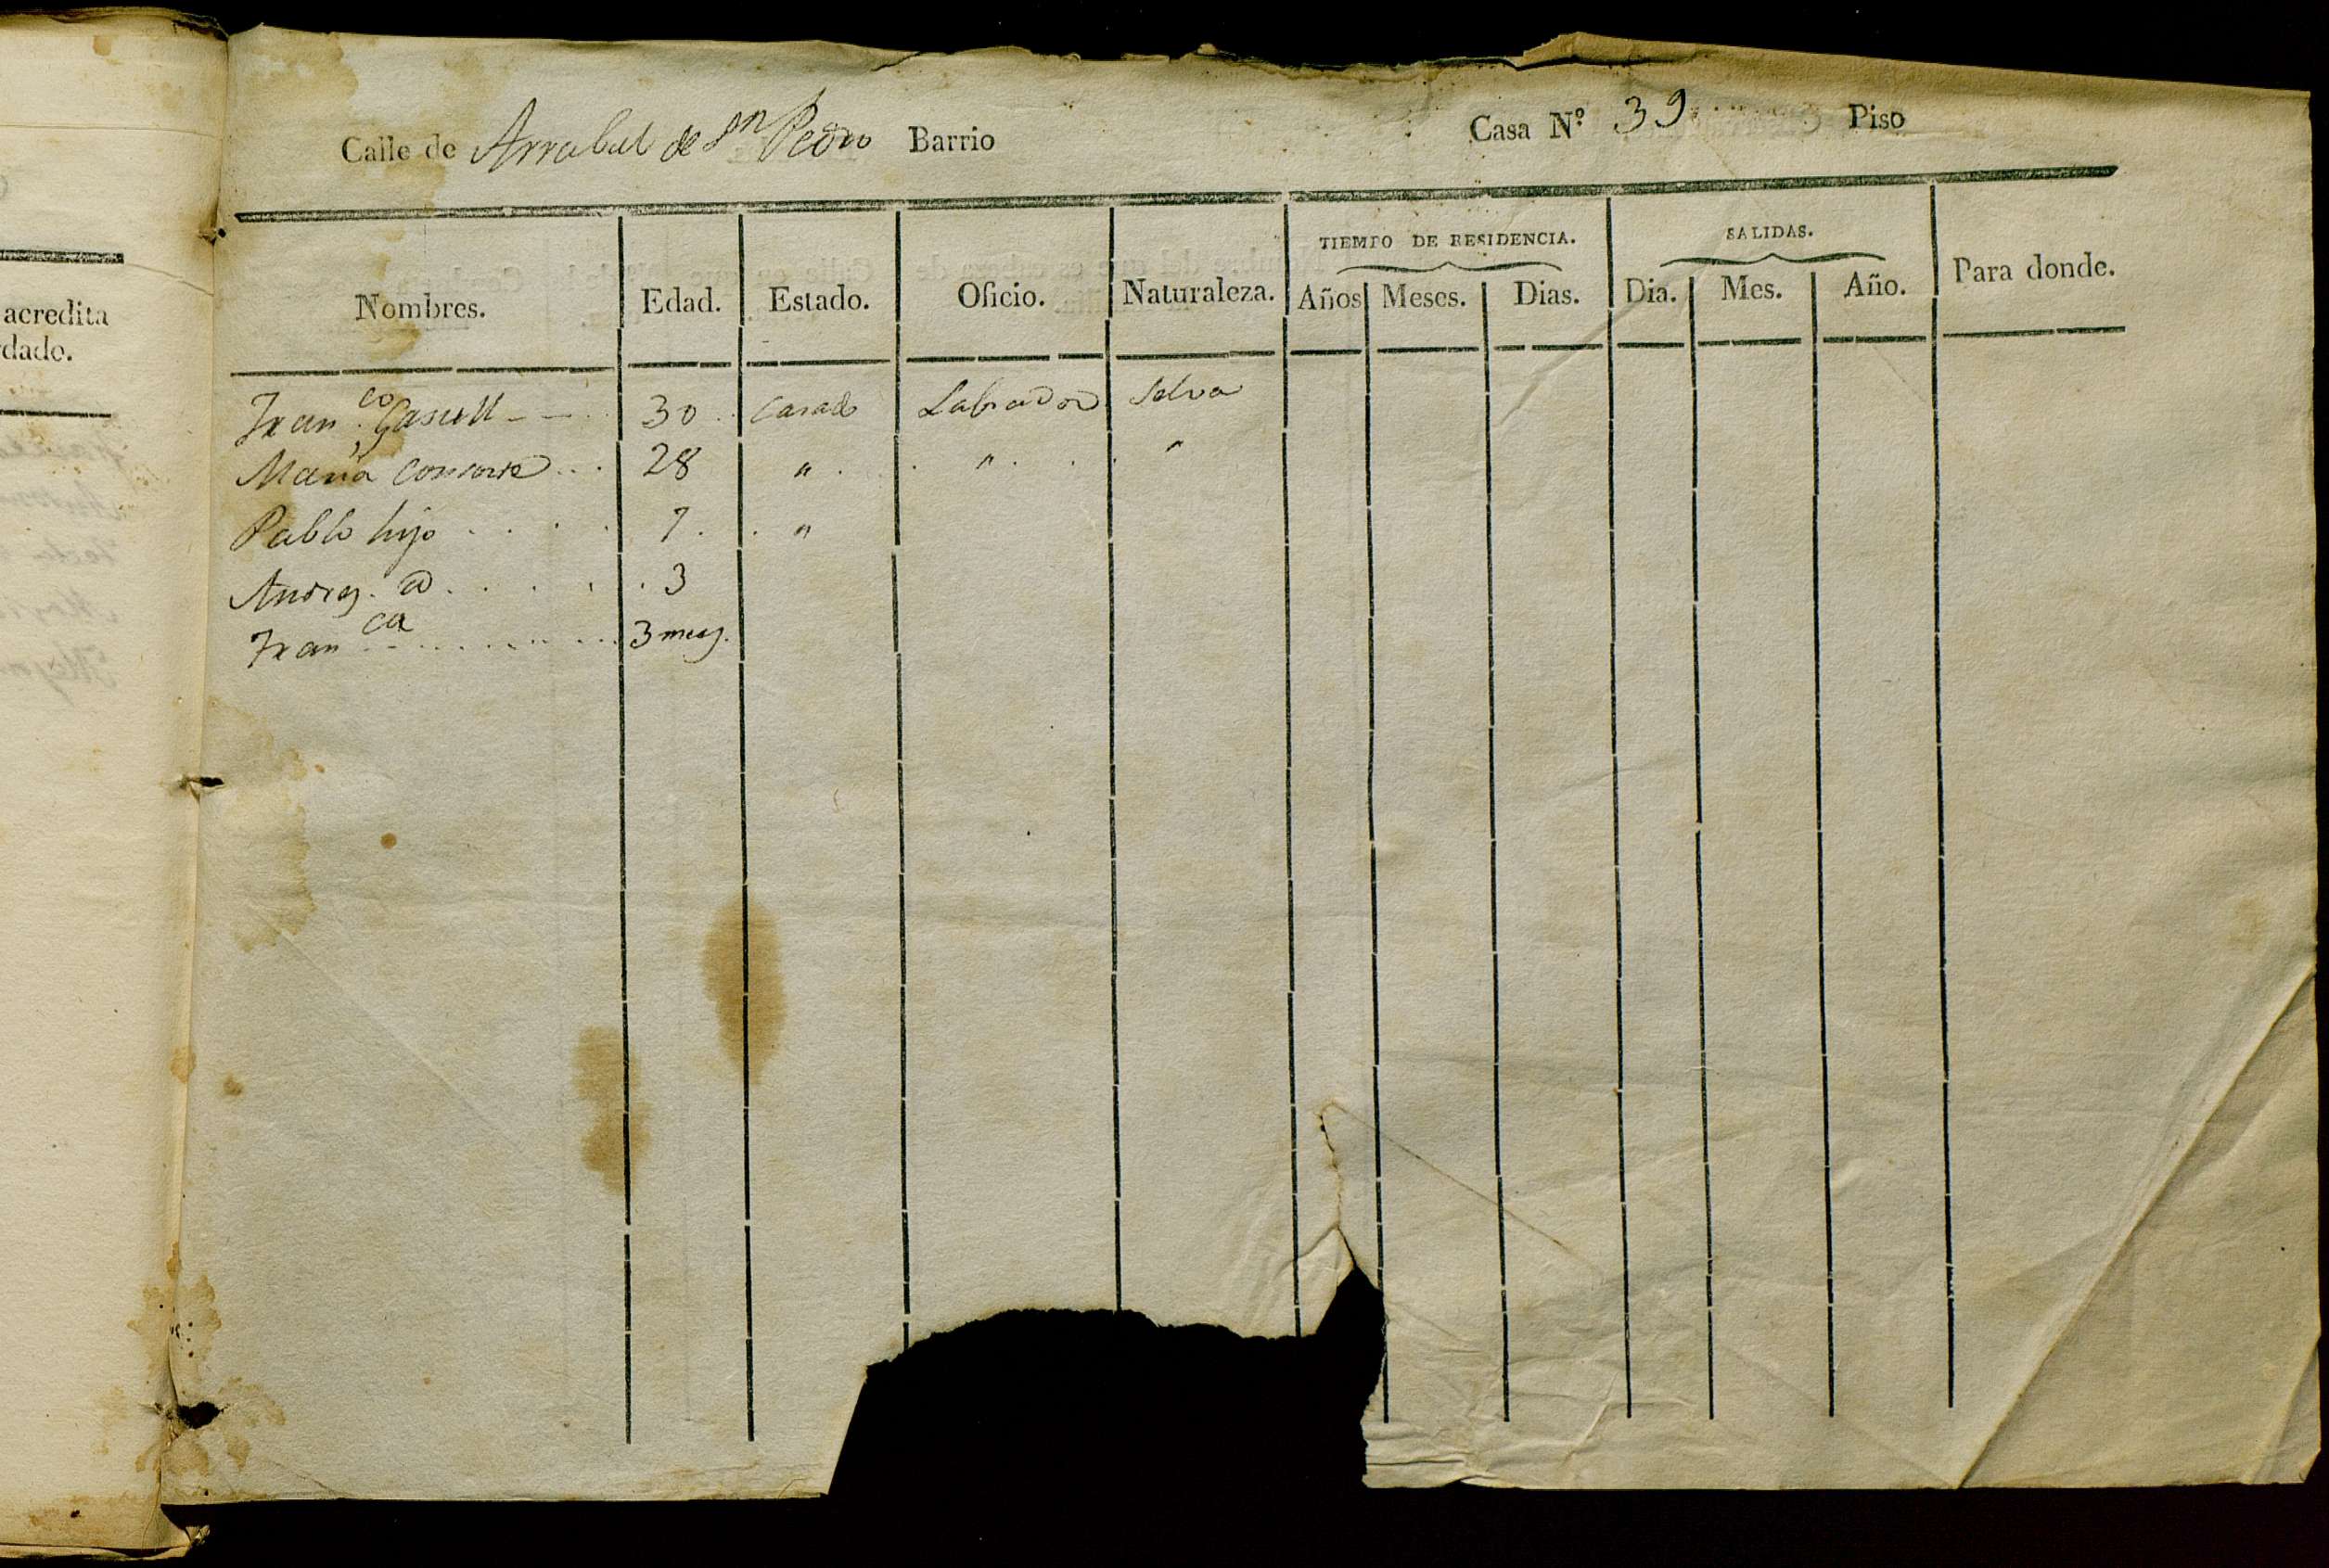 acredita
dado.
Calle de Arrabal de Sn Pedro Barrio Casa Nº 39 Piso
TIEMPO DE RESIDENCIA. SALIDAS.
Nombres. Edad. Estado. Oficio. Naturaleza. Años Meses. Dias. Dia. Mes. Año. Para donde.
Franco Gasull 30 Casado Labrador Selva
Maria consorte 28 " " "
Pablo hijo 7 "
Andres 3
Franca 3 mes.